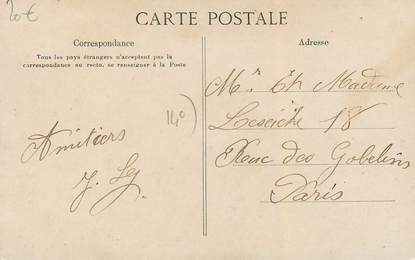 20€
CARTE POSTALE
Correspondance
Tous les pays étrangers n'acceptent pas la
correspondance au recto, se renseigner à la Poste
Adresse
Mr Et Madame
18
Avenue des Gobelins
Paris
Amitiers
J.
140